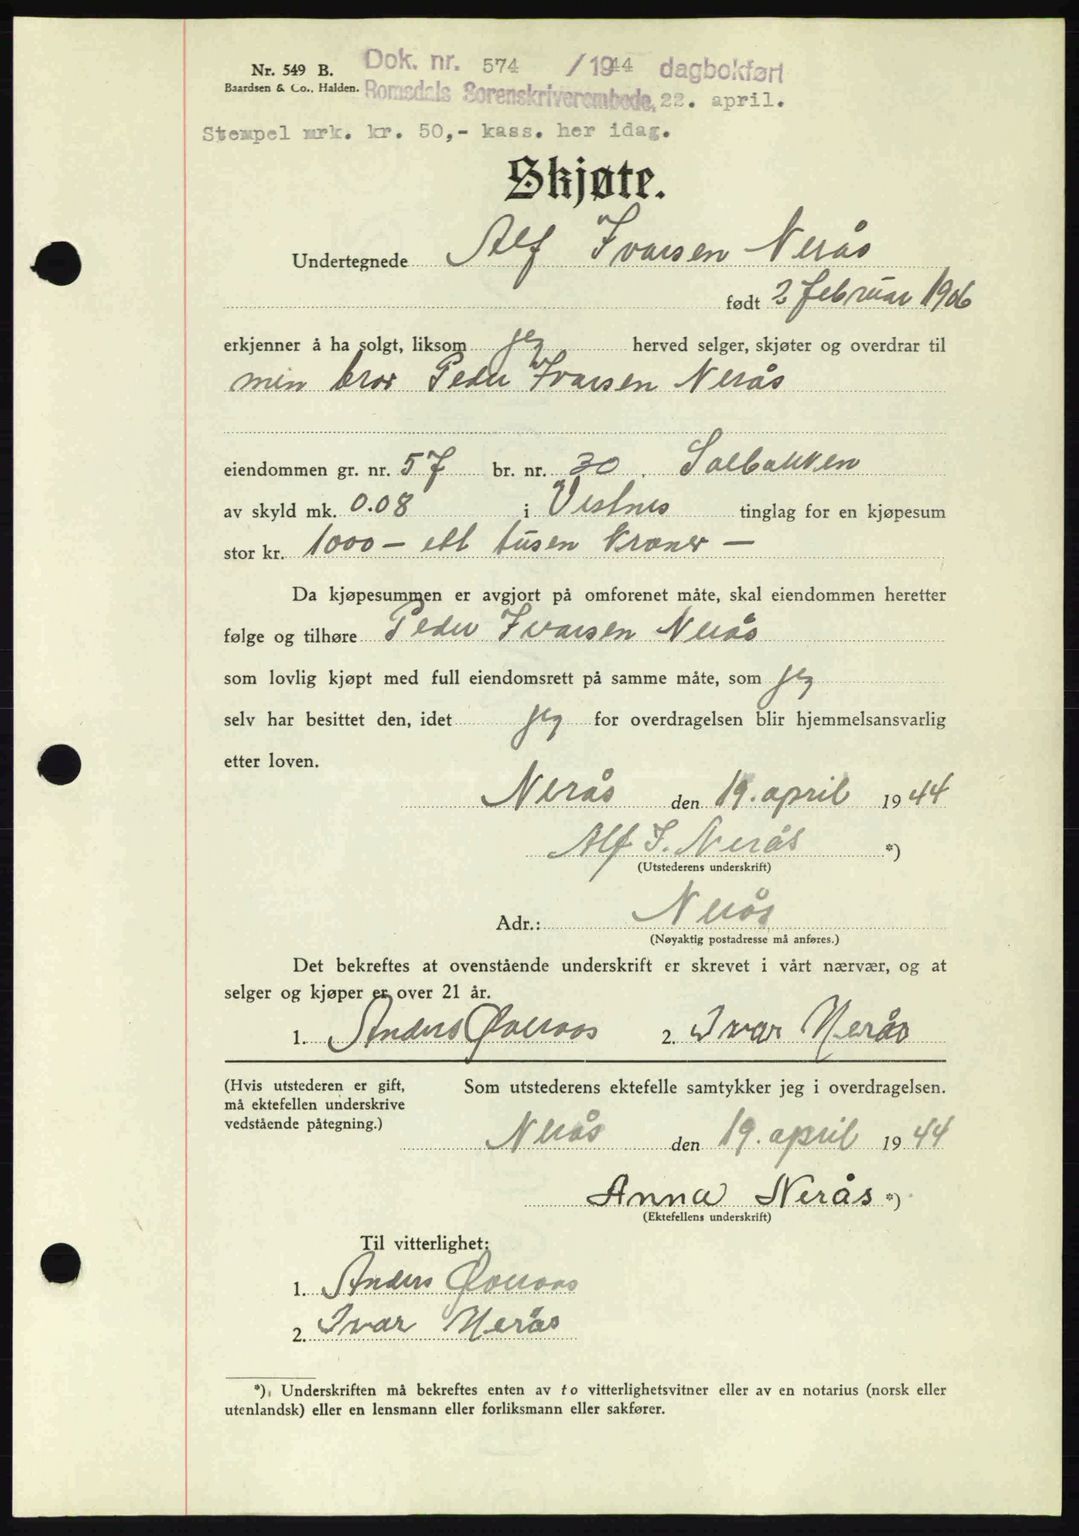 Nr. 549 B.
Baardsen & Co., Halden.
Dok. nr. 574 /1944 dagbokført
Romsdals Sorenskriverembede, 22. april.
Stempel mrk. kr. 50,- kass. her idag.
Skjøte.
Undertegnede Alf Ivarsen Nerås
født 2 februar 1906
erkjenner å ha solgt, liksom jeg herved selger, skjøter og overdrar til
min bror Peder Ivarsen Nerås
eiendommen gr. nr. 57 br. nr. 30, Solbakken
av skyld mk. 0.08 i Vestnes tinglag for en kjøpesum
stor kr. 1000 - ett tusen kroner -
Da kjøpesummen er avgjort på omforenet måte, skal eiendommen heretter
følge og tilhøre Peder Ivarsen Nerås
som lovlig kjøpt med full eiendomsrett på samme måte, som jeg
selv har besittet den, idet jeg for overdragelsen blir hjemmelsansvarlig
etter loven.
Nerås den 19. april 1944
Alf I. Nerås *)
(Utstederens underskrift)
Adr.: Nerås
(Nøyaktig postadresse må anføres.)
Det bekreftes at ovenstående underskrift er skrevet i vårt nærvær, og at
selger og kjøper er over 21 år.
1. Anders Øveraas 2. Ivar Nerås
(Hvis utstederen er gift,
må ektefellen underskrive
vedstående påtegning.)
Som utstederens ektefelle samtykker jeg i overdragelsen.
Nerås den 19. april 1944
Anna Nerås *)
(Ektefellens underskrift)
Til vitterlighet:
1. Anders Øveraas
2. Ivar Nerås
*) Underskriften må bekreftes enten av to vitterlighetsvitner eller av en notarius (norsk eller
utenlandsk) eller en lensmann eller forliksmann eller sakfører.